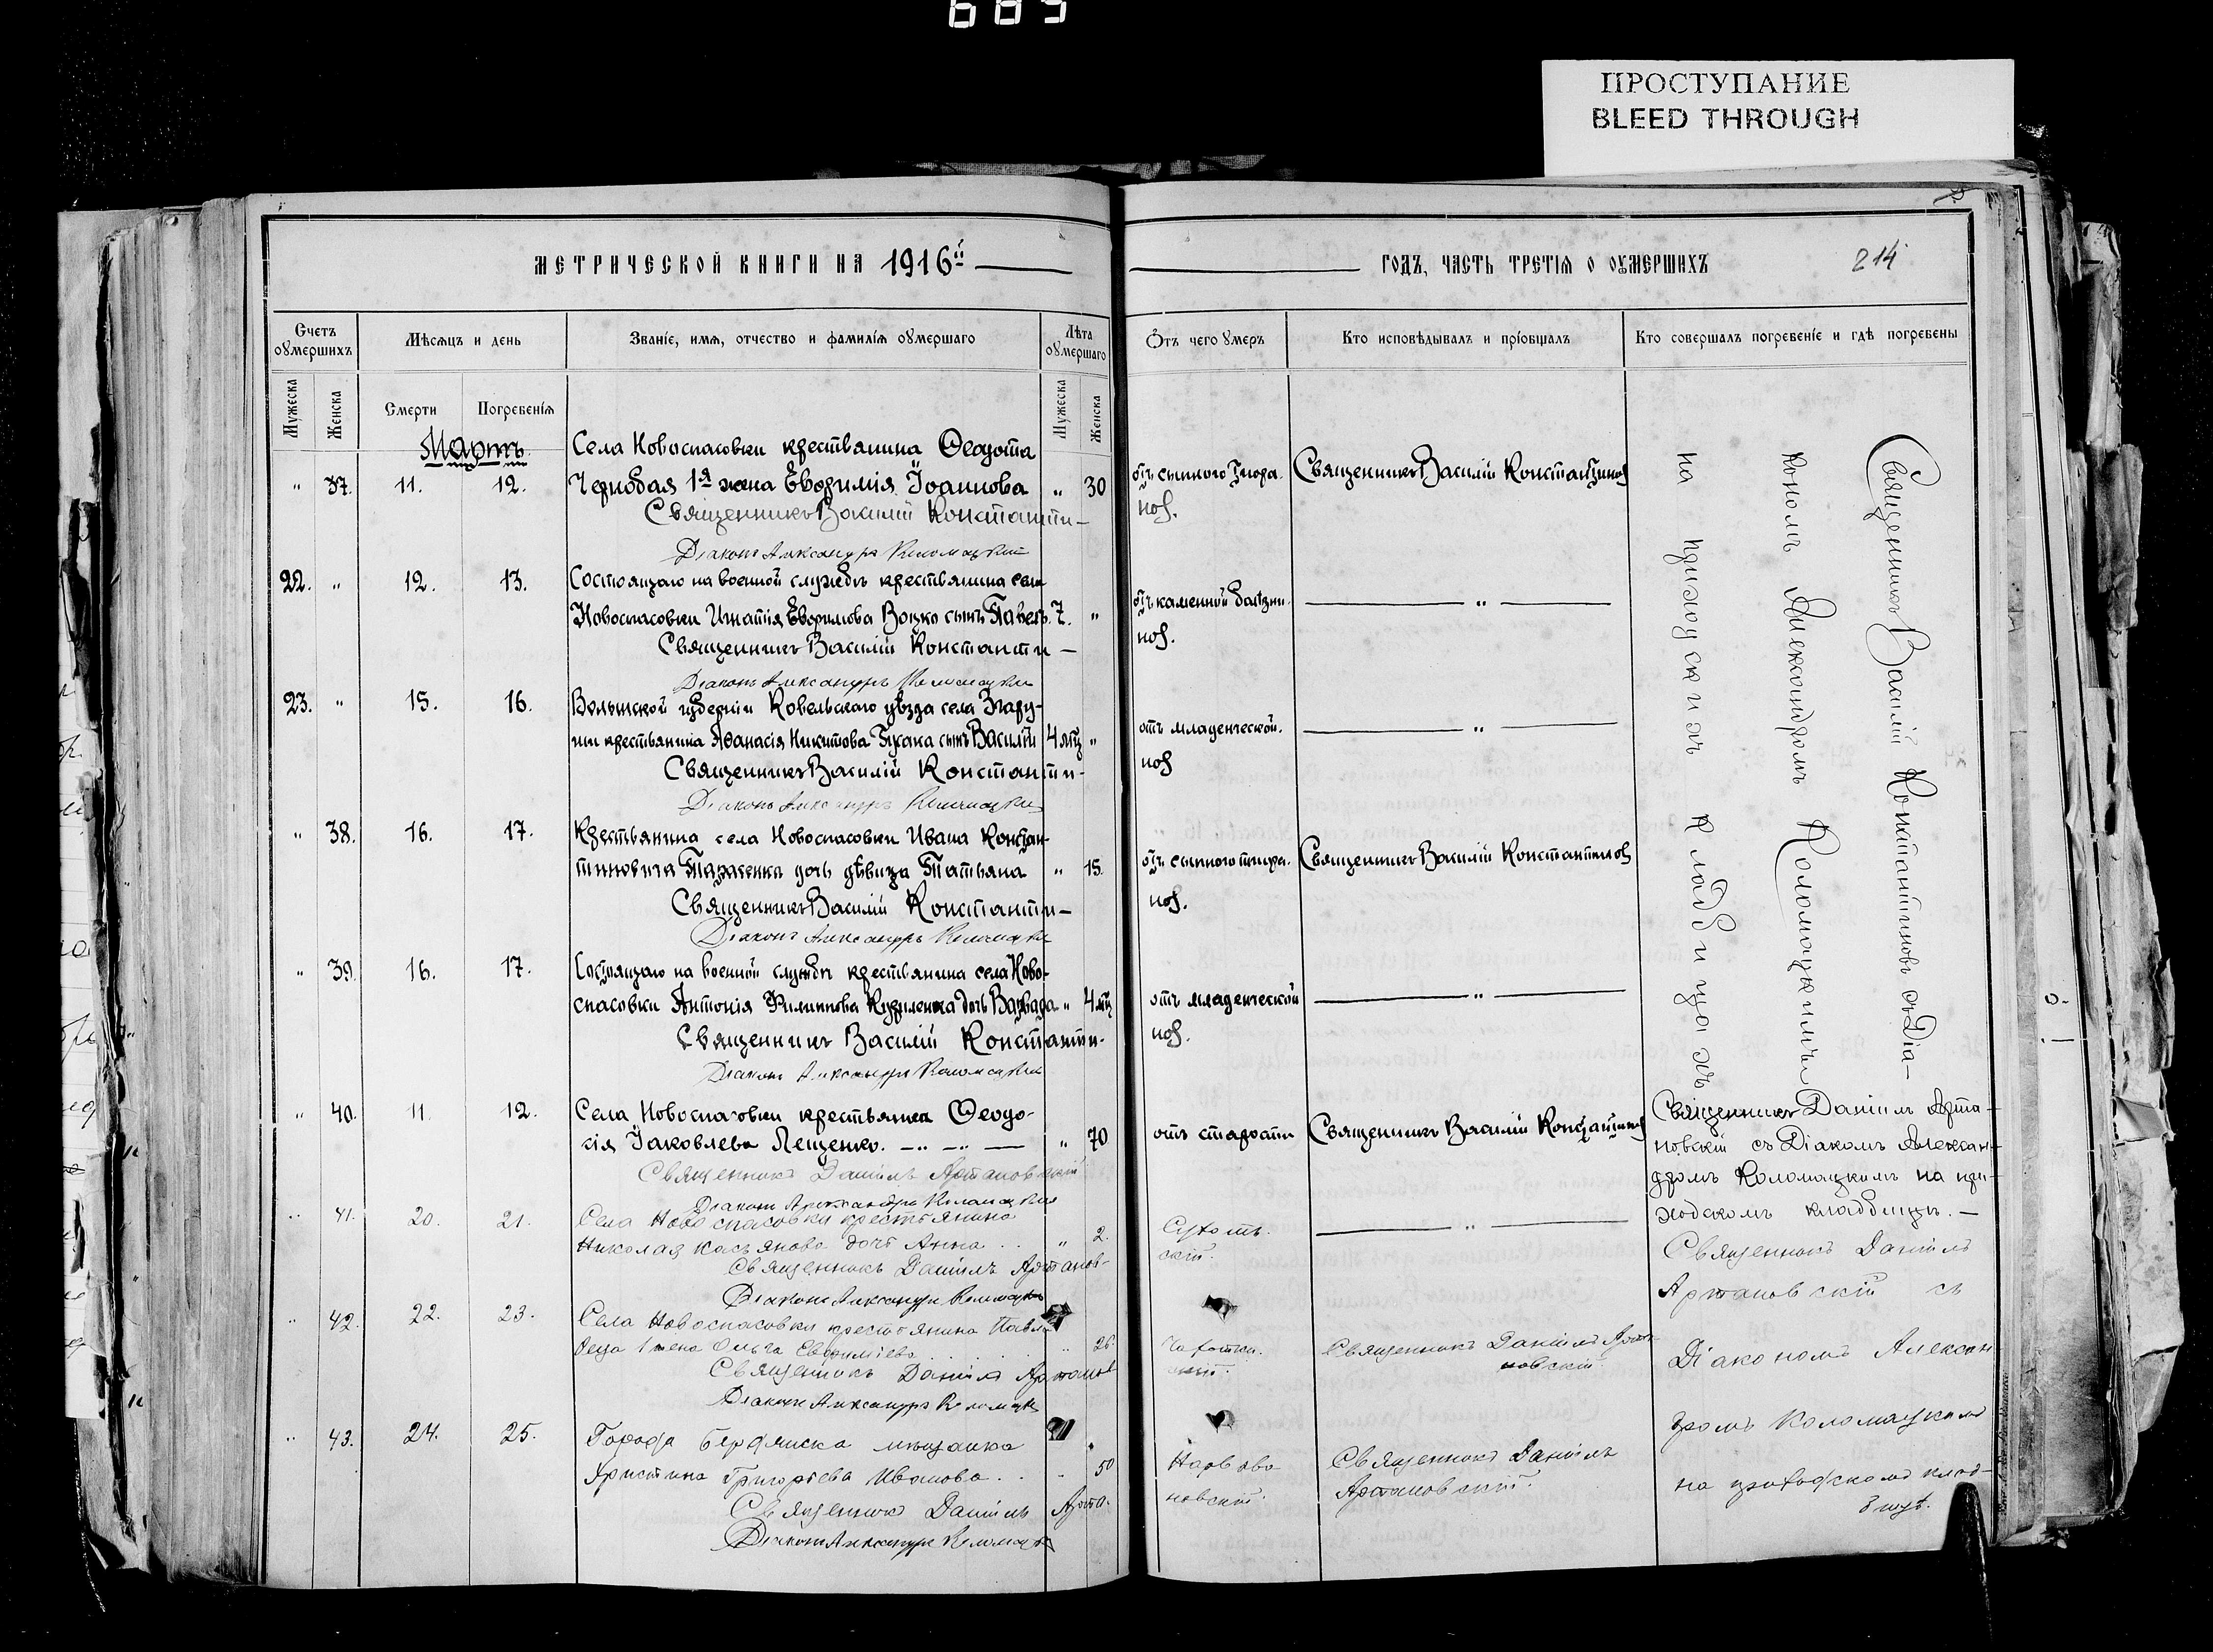 689
ПРОСТУПАНИЕ
BLEED THROUGH
МЕТРИЧЕСКОЙ КНИГИ НА 1916й
ГОДЪ, ЧАСТЬ ТРЕТІЯ О ОУМЕРШИХЪ
214
Счетъ оумершихъ
Мѣсяцъ и день
Званіе, имя, отчество и фамилія оумершаго
Лѣта оумершаго
Отъ чего умеръ
Кто исповѣдывалъ и пріобщалъ
Кто совершалъ погребеніе и гдѣ погребены
Мужеска
Женска
Смерти
Погребенія
Мужеска
Женска
Мартъ
Села Новоспасовки крестьянина Ѳеодота
" 37. 11. 12. Чернобая 1я жена Евѳимія Іоаннова " 30 отъ сыпного тифа. Священникъ Василій Константиновъ
Священникъ Василій Константи-
нов.
Діаконъ Александръ Коломацкій
22. " 12. 13. Состоящаго на военной службѣ крестьянина села
Новоспасовки Игнатія Евѳимова Воцко сынъ Павелъ. 7. " отъ каменной болѣзни. — " —
Священникъ Василій Константи —
нов.
Діаконъ Александръ Коломацкій
23. " 15. 16. Волынской губерніи Ковельскаго уѣзда села
крестьянина Аѳанасія Никитова Гусака сынъ Василій 4 мц " отъ младенческой. — " —
Священникъ Василій Константи-
нов
Діаконъ Александръ Коломацкій
" 38. 16. 17. Крестьянина села Новоспасовки Ивана Констан-
тиновича Тараненка дочь дѣвица Татьяна " 15. отъ сыпного тифа. Священникъ Василій Константиновъ
Священникъ Василій Константи —
нов.
Діаконъ Александръ Коломацкій
" 39. 16. 17. Состоящаго на военной службѣ крестьянина села Ново-
спасовки Антонія Филиппова Куриленка дочь Варвара " 4 мц отъ младенческой — " —
Священникъ Василій Константи-
нов.
Діаконъ Александръ Коломацкій
Священникъ Василій Константиновъ съ Діа-
кономъ Александромъ Коломацкимъ
на приходскомъ кладбищѣ
" 40. 11. 12. Села Новоспасовки крестьянка Ѳеодо-
сія Іаковлева Лещенко. " 70 отъ старости Священникъ Василій Константиновъ
Священникъ Даніилъ Артановскій
Діаконъ Александръ Коломацкій
Священникъ Даніилъ Арта-
новскій съ Діаком Алексан-
дромъ Коломацкимъ на при-
ходскомъ кладбищѣ. —
" 41. 20. 21. Села Новоспасовки крестьянина
Николая Касьянова дочь Анна . . " 2. — " —
Священникъ Даніилъ Артанов-
скій.
Діаконъ Александръ Коломацкій
" 42. 22. 23. Села Новоспасовки крестьянина Павла
жена Ольга Евѳиміева " 26. Чахотки. Священникъ Даніилъ Арта-
новскій.
Священникъ Даніилъ Артанов
скій.
Діаконъ Александръ Коломацкій
" 43. 24. 25. Города Бердянска мѣщанка
Христина Григорьева Иванова . . - 50 Священникъ Даніилъ
Артановскій.
Священникъ Даніилъ Арта-
новскій.
Діаконъ Александръ Коломацкій
Священникъ Даніилъ
Артановскій съ
Діакономъ Алексан
дромъ Коломацкимъ
на приходскомъ клад-
бищѣ.